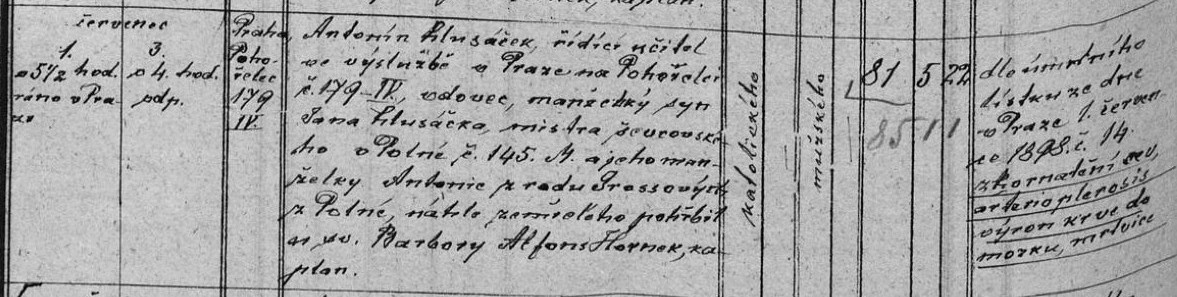 červenec
1. 3.
o 5 1/2 hod. o 4. hod.
ráno v Pra- odp.
ze
Praha,
Poho-
řelec
179
IV.
Antonín Hlusáček, řídící učitel
ve výslužbě v Praze na Pohořelci
č. 179-IV., vdovec, manželský syn
Jana Hlusáčka, mistra ševcovské-
ho v Polné č. 145. M. a jeho man-
želky Antonie z rodu Grossových
z Polné, náhle zemřelého pohřbil
u sv. Barbory Alfons Hornek, ka-
plan.
katolického
mužského
81 5 22
85 11
dle úmrtního
lístku ze dne
v Praze 1. červen-
ce 1898. č. 14.
zkornatění cev,
arteriosklerosis
výron krve do
mozku, mrtvice